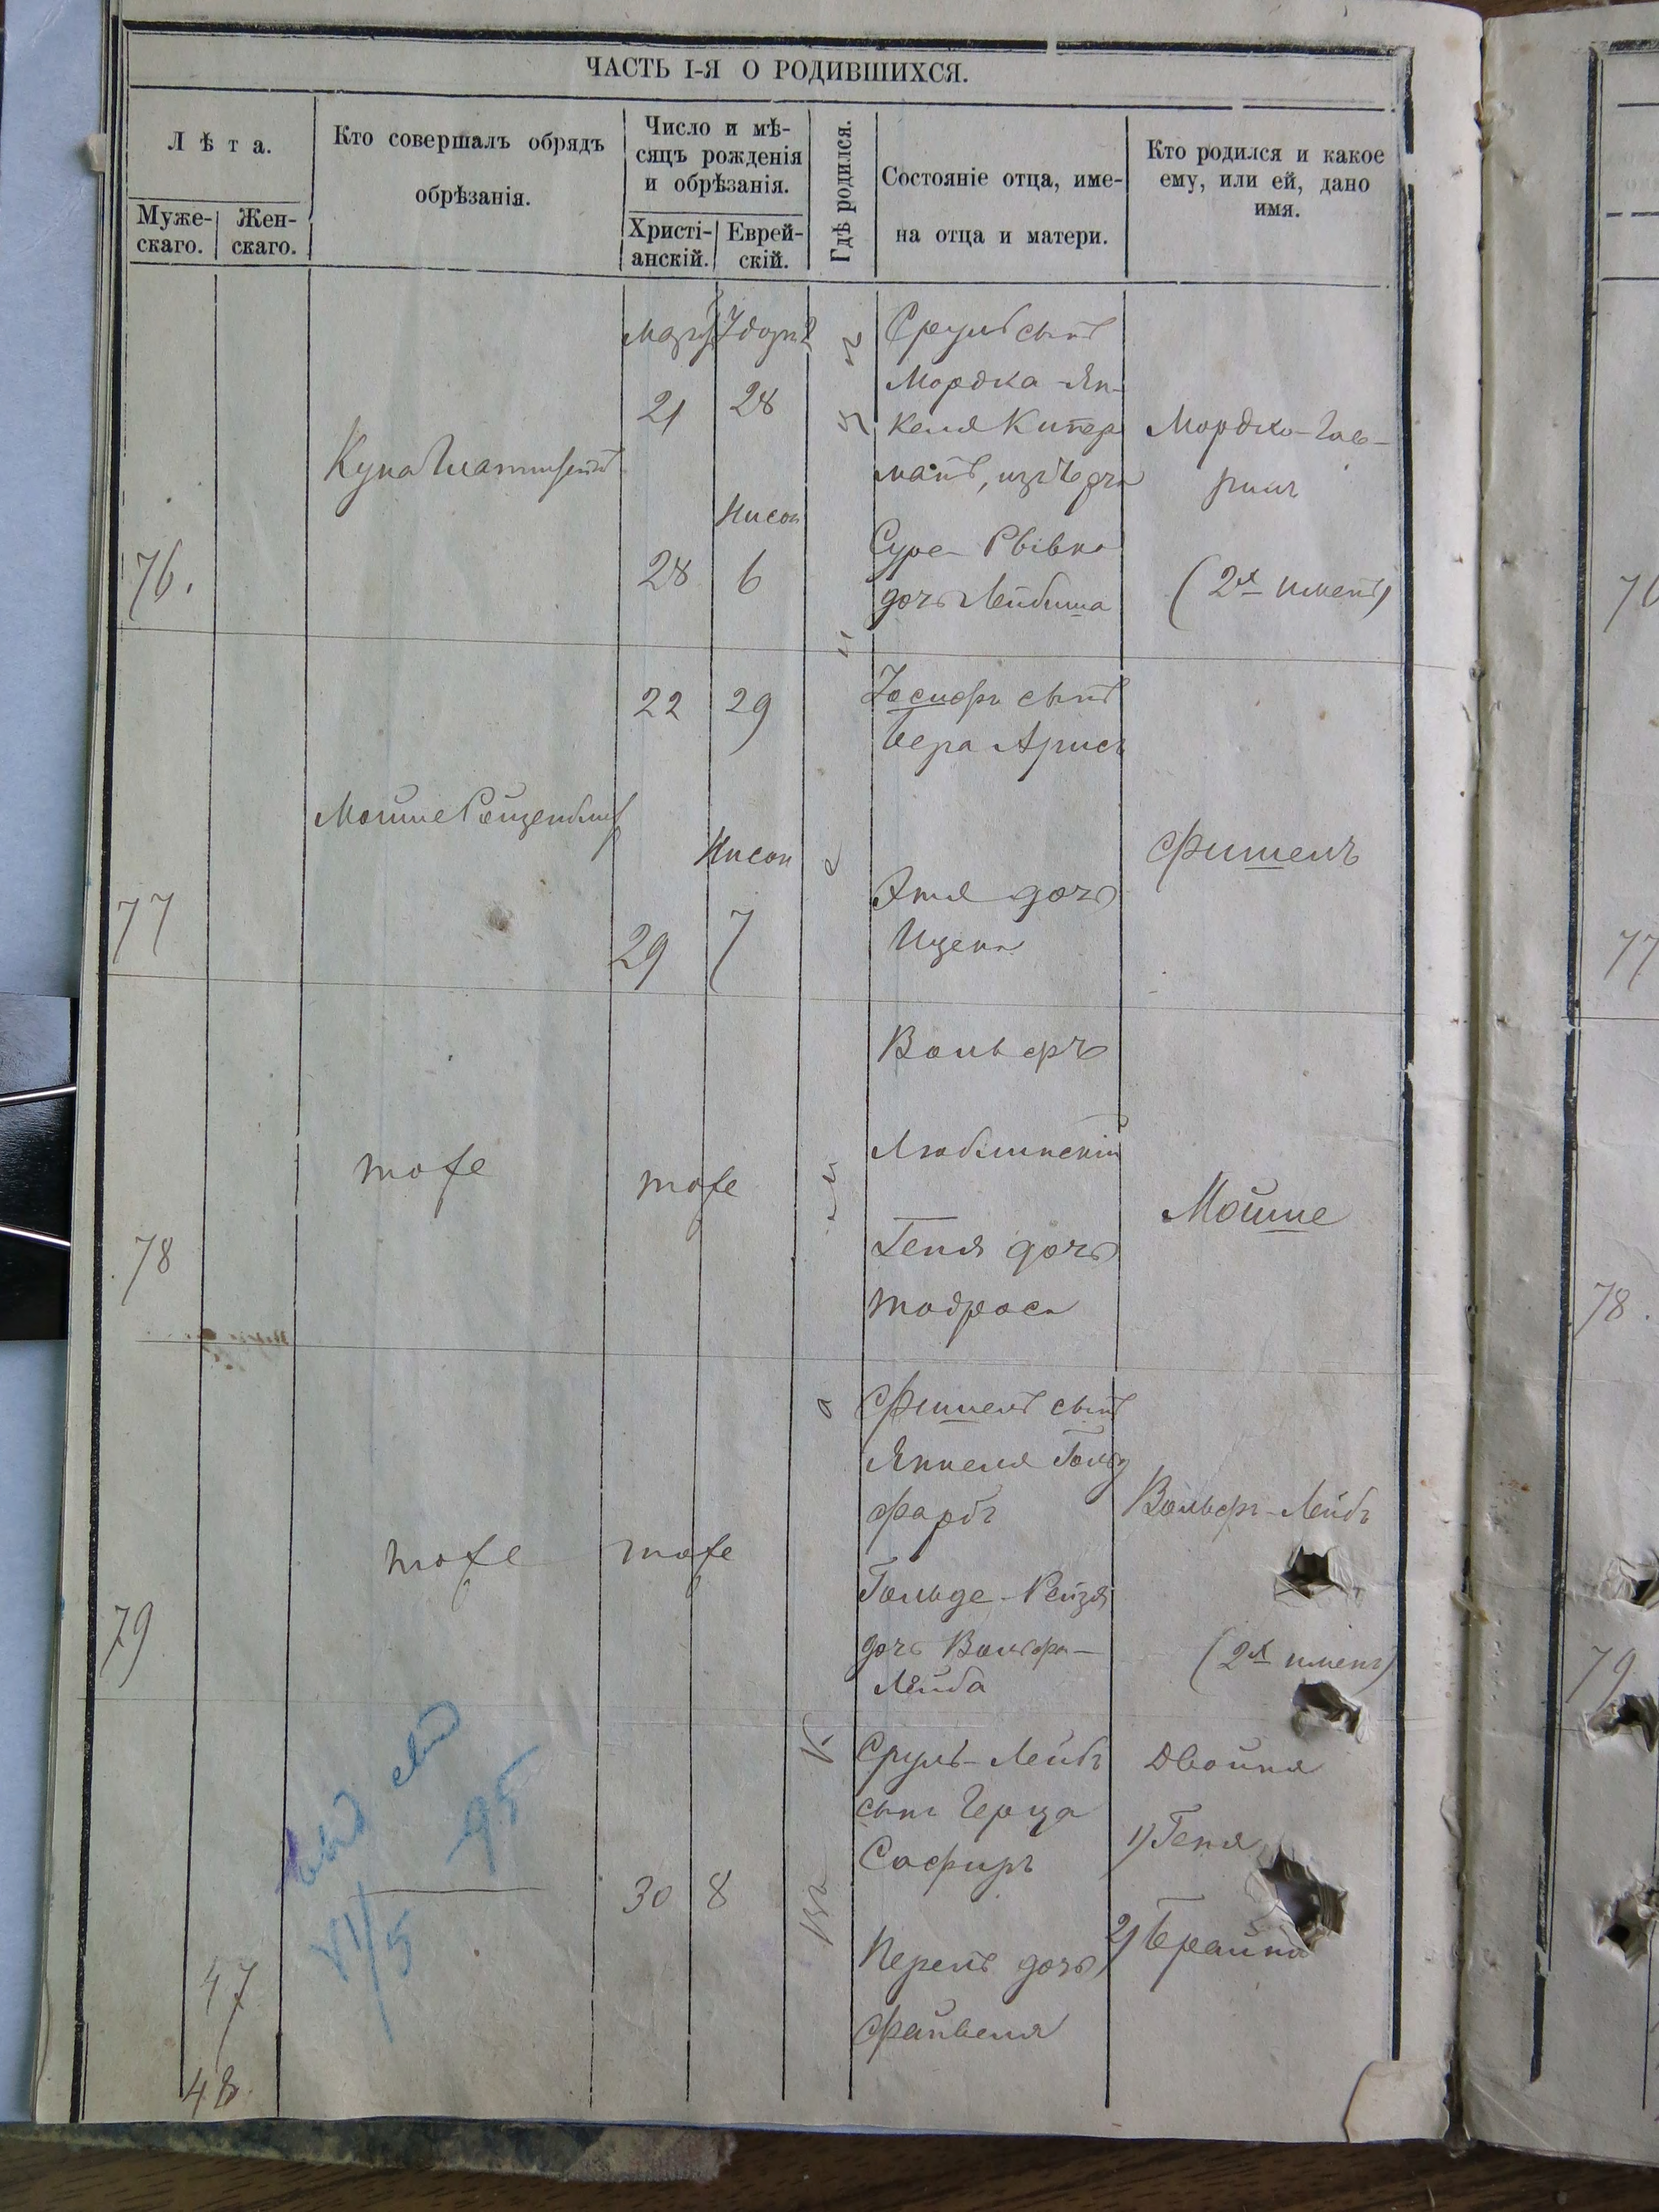 ЧАСТЬ I-Я О РОДИВШИХСЯ.
Лѣта.
Муже-
скаго.
Жен-
скаго.
Кто совершалъ обрядъ
обрѣзанія.
Число и мѣ-
сяцъ рожденія
и обрѣзанія.
Христі-
анскій.
Еврей-
скій.
Гдѣ родился.
Состояніе отца, име-
на отца и матери.
Кто родился и какое
ему, или ей, дано
имя.
76.
21
28
Нисон
28
6
Сруль сынъ
Мордка-Ян-
келя Китер
манъ,
Суре-Рывка
дочь Лейбиша
Мордко-
(2х именъ)
77
Мойше
22
29
Нисон
29
7
Іосифъ сынъ
Бера
Этя дочь
Ицека
Фишель
78
тоже
тоже
Вольфъ
Люблинскій
Геня дочь
Тодроса
Мойше
79
тоже
тоже
Фишель сынъ
Янкеля Гольд
фарбъ
Гольде-Рейзя
дочь Вольфа-
Лейба
Вольфъ-Лейбъ
(2х именъ)
47
48.
95
VI/5
30
8
Сруль-Лейбъ
сынъ Герца
Сафиръ
Перель дочь
Файвеля
Двойня
1) Геня
2) Брайна
76
77
78.
79